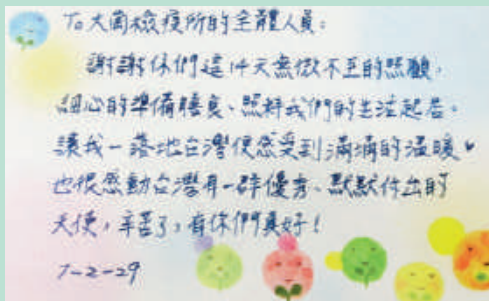 To大崗檢疫所的全體人員：
謝謝你們這14天無微不至的照顧，
細心的準備膳食、照料我們的生活起居。
讓我一落地台灣便感受到滿滿的溫暖♥
也很感動台灣有一群優秀、默默付出的
天使，辛苦了，有你們真好！
1-2-29